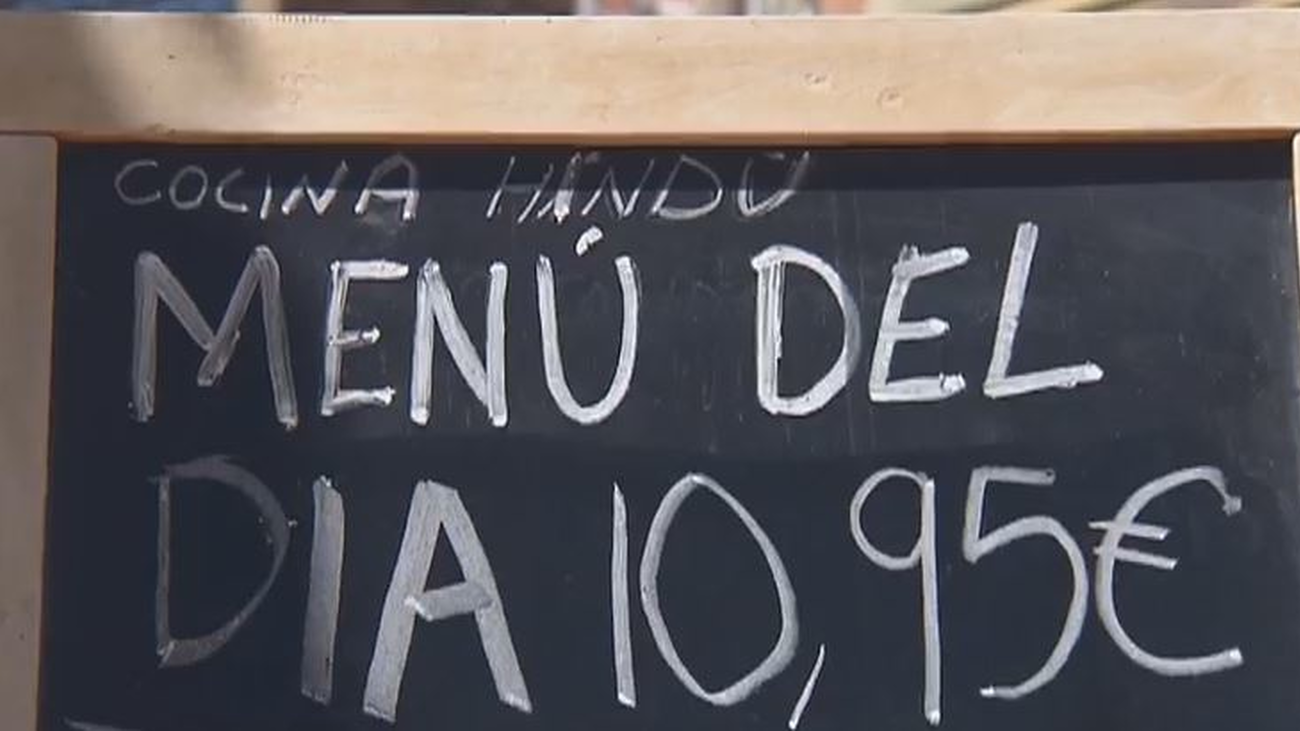 COCINA HINDÚ
MENÚ DEL
DIA 10,95€